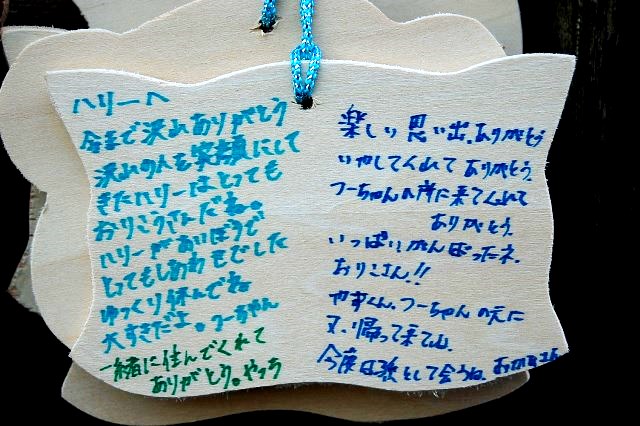 ハリーへ
今まで沢山ありがとう
沢山の人を笑顔にして
きたハリーはとっても
おりこうさんだね。
ハリーがあいぼうで
とってもしあわせでした
ゆっくり休んでね
大すきだよ。つーちゃん
一緒に住んでくれて
ありがとう。やっち
楽しい思い出、ありがとう
いやしてくれてありがとう。
つーちゃんの所に来てくれて
ありがとう。
いっぱいがんばったネ。
おりこさん!!
つーちゃんの元に
又、帰って来てね
今度は孫として会うね。